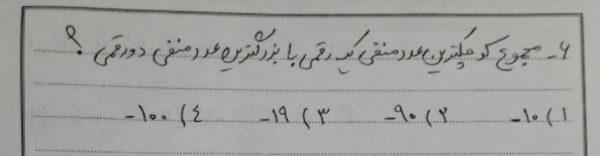 ۶ـ مجموع کوچکترین عدد منفی یک رقمی با بزرگترین عدد منفی دورقمی ؟
۱) ۱۰- ۲) ۹۰- ۳) ۱۹- ۴) ۱۰۰-